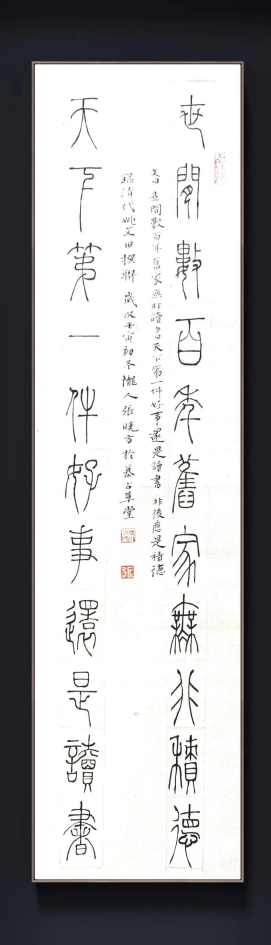 世間數百年舊家無非積德
文曰世間數百年舊家無非讀書天下第一件好事還是讀書 非後應是積德
錄清代姚文田撰聯 歲次壬寅初冬隴人張曉方於慕古草堂
天下第一件好事還是讀書